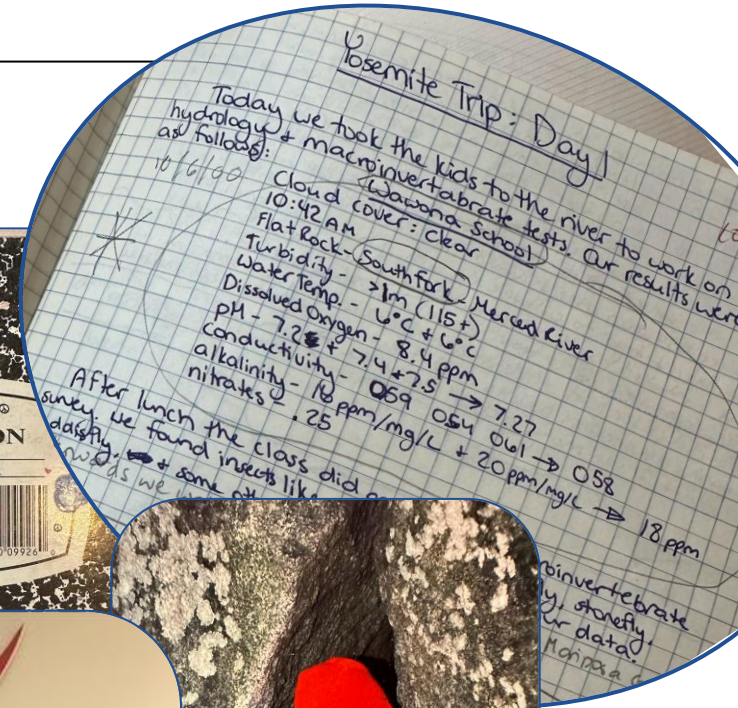 Yosemite Trip: Day 1
Today we took the kids to the river to work on
hydrology + macroinvertabrate tests. Our results were
as follows:
10/6/00
Wawona School
Cloud cover: Clear
10:42 AM
Flat Rock - South Fork - Merced River
Turbidity - >1m (115+)
Water Temp. - 6°C + 6°C
Dissolved Oxygen - 8.4 ppm
pH - 7.2 + 7.4 + 7.5 → 7.27
Conductivity - 059 054 061 → 058
alkalinity - 18 ppm/mg/L + 20 ppm/mg/L → 18 ppm
nitrates - .25
After lunch the class did
survey. We found insects like
+ some
we
oinvertebrate
ly, stonefly.
ur data.
ON
09926